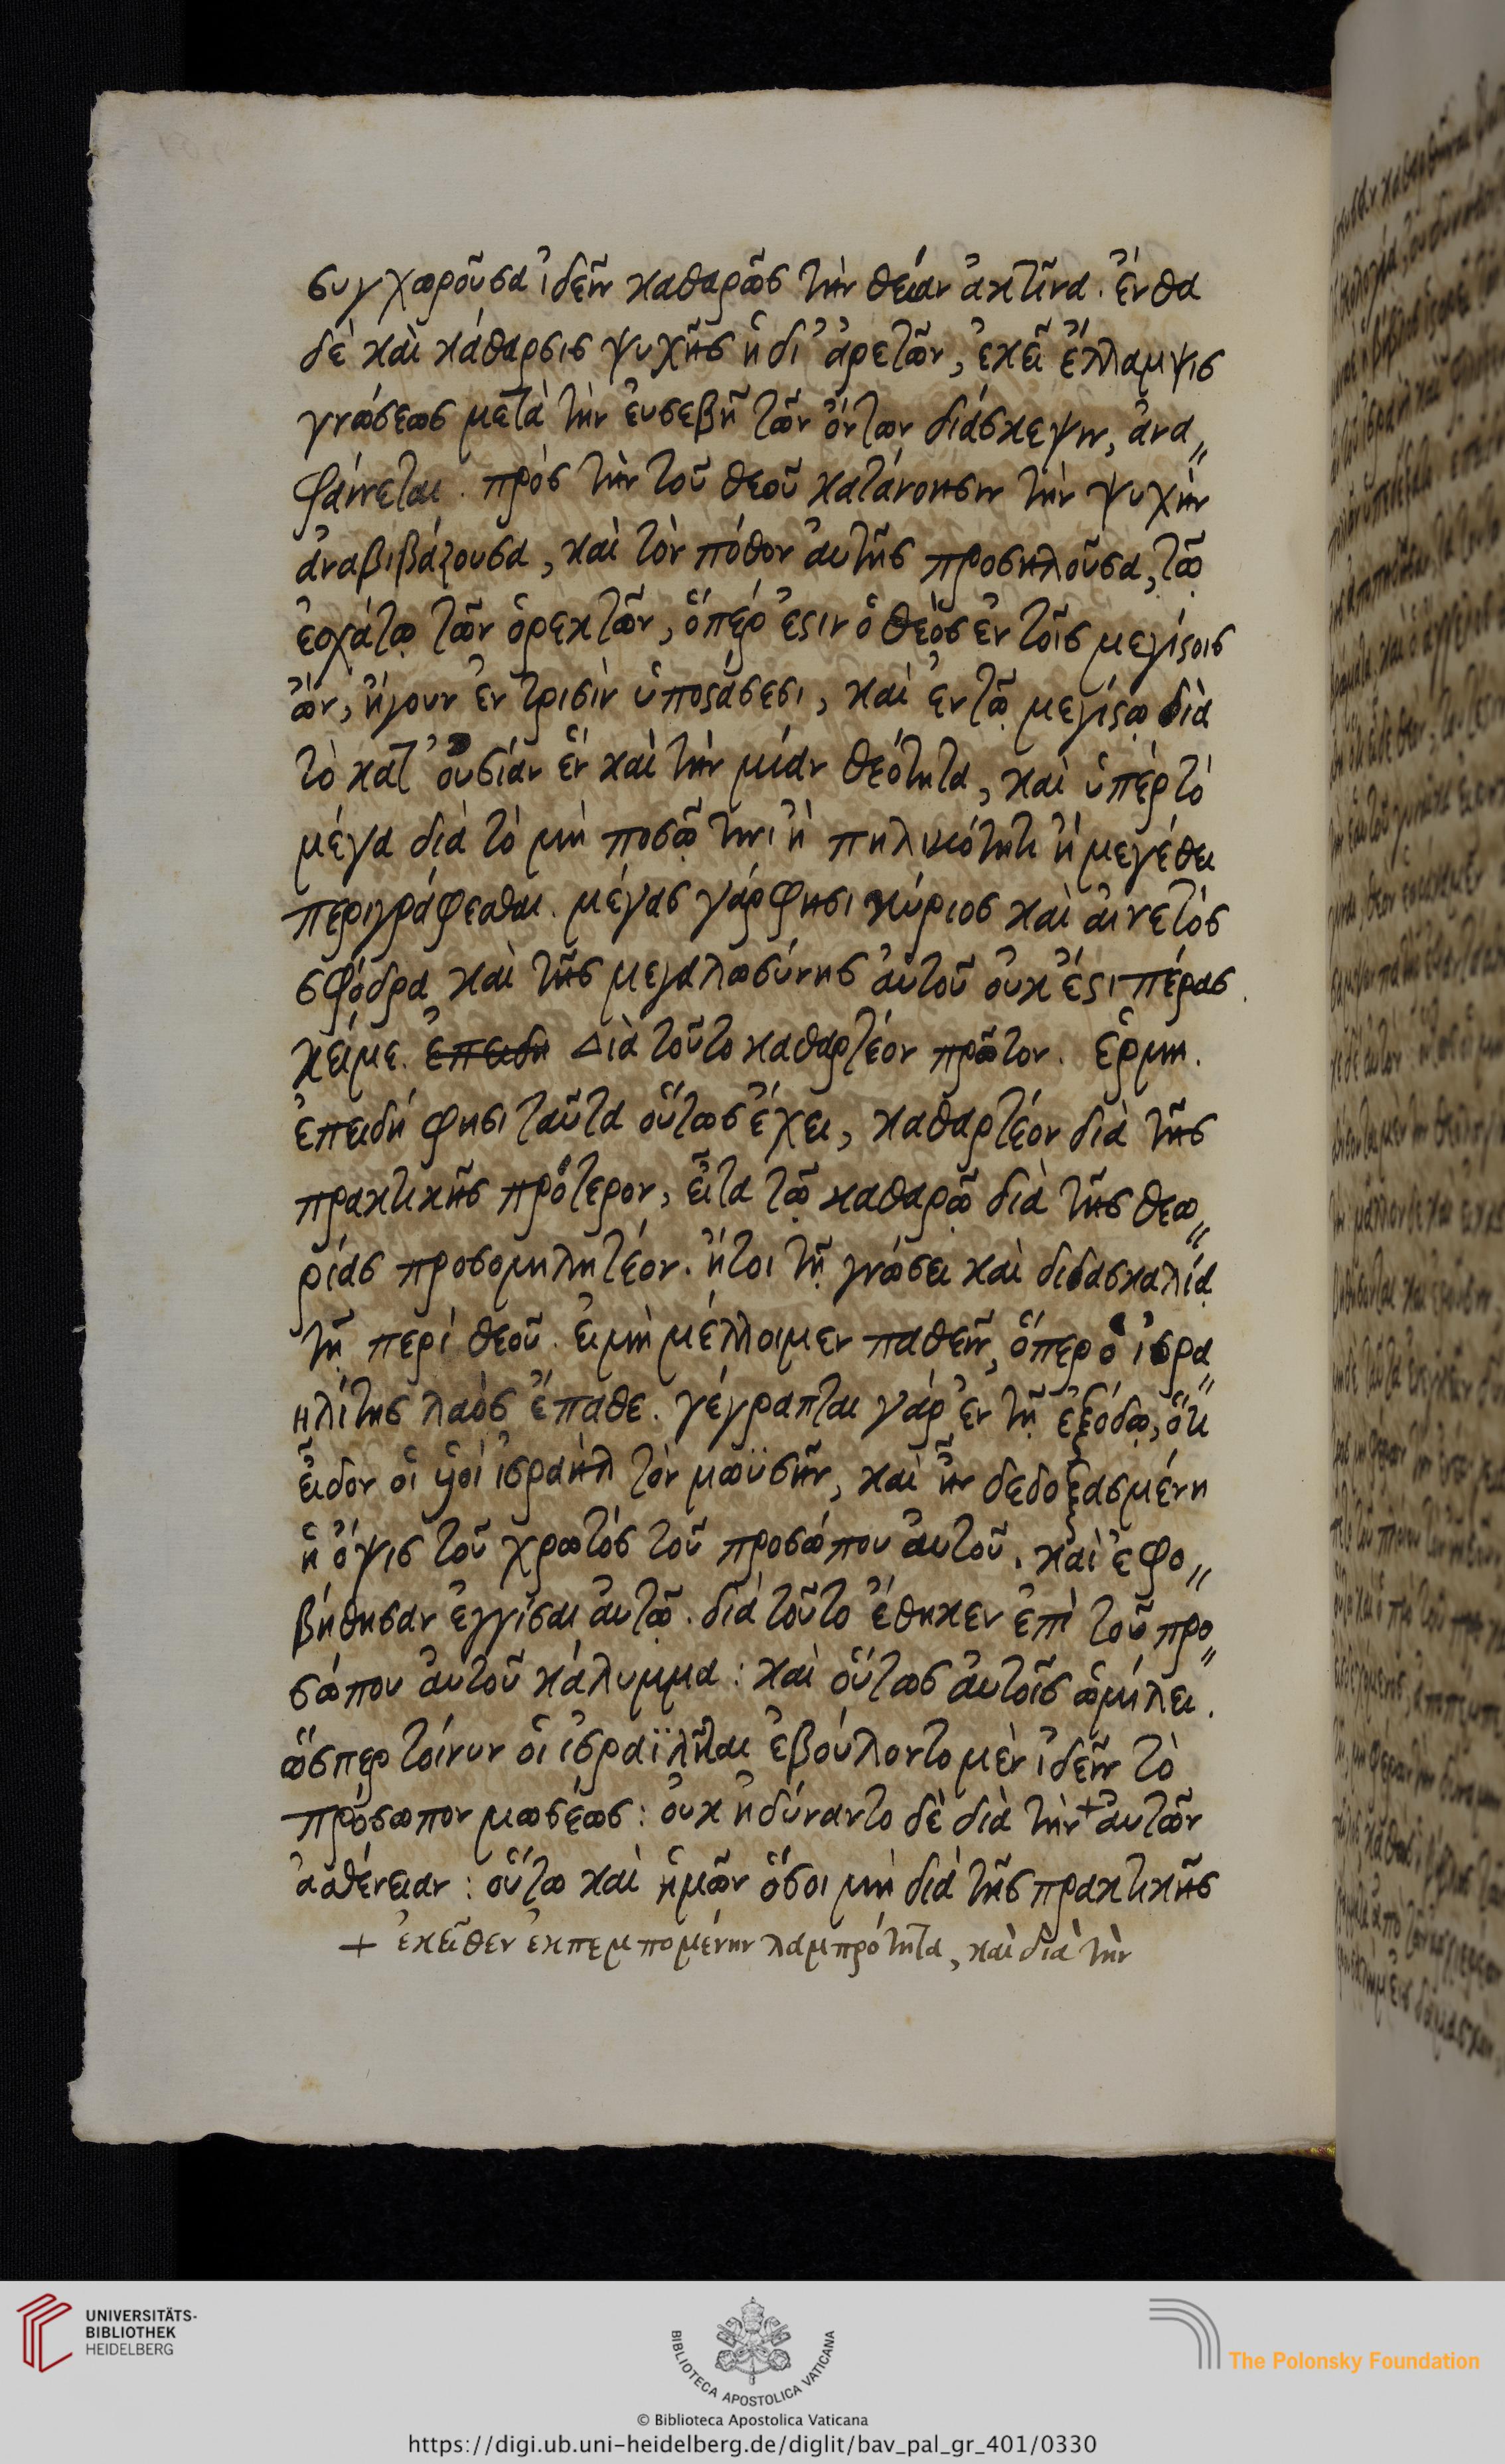 συγχωροῦσα ἰδεῖν καθαρῶς τὴν θείαν ἀκτῖνα. ἔνθα
δὲ καὶ κάθαρσις ψυχῆς ἡ δι' ἀρετῶν, ἐκεῖ ἔλλαμψις
γνώσεως μετὰ τὴν εὐσεβῆ τῶν ὄντων διάσκεψιν, ἀνα〃
φαίνεται. πρὸς τὴν τοῦ θεοῦ κατάνοησιν τὴν ψυχὴν
ἀναβιβάζουσα, καὶ τὸν πόθον αὐτῆς προσηλοῦσα, τῷ
ἐσχάτῳ τῶν ὀρεκτῶν, ὅπέρ ἐστιν ὁ θεὸς ἐν τοῖς μεγίστοις
ὢν, ἤγουν ἐν τρισὶν ὑποστάσεσι, καὶ ἐν τῷ μεγίστῳ διὰ
τὸ κατ' οὐσίαν ἓν καὶ τὴν μίαν θεότητα, καὶ ὑπὲρ τὸ
μέγα διὰ τὸ μὴ ποσῷ τινι ἢ πηλικότητι ἢ μεγέθει
περιγράφεσθαι. μέγας γάρ φησι κύριος καὶ αἰνετὸς
σφόδρα καὶ τῆς μεγαλωσύνης αὐτοῦ οὐκ ἔστι πέρας.
κείμε. ἐπειδὴ Διὰ τοῦτο καθαρτέον πρῶτον. ἑρμη.
ἐπειδή φησι ταῦτα οὕτως ἔχει, καθαρτέον διὰ τῆς
πρακτικῆς πρότερον, εἶτα τῷ καθαρῷ διὰ τῆς θεω〃
ρίας προσομιλητέον. ἤτοι τῇ γνώσει καὶ διδασκαλίᾳ
τῇ περὶ θεοῦ. εἰ μὴ μέλλοιμεν παθεῖν, ὅπερ ὁ ἰσρα〃
ηλίτης λαὸς ἔπαθε. γέγραπται γὰρ ἐν τῇ ἐξόδῳ, ὅτι
εἶδον οἱ υἱοὶ ἰσραὴλ τὸν μωϋσῆν, καὶ ἦν δεδοξασμένη
ἡ ὄψις τοῦ χρωτὸς τοῦ προσώπου αὐτοῦ. καὶ ἐφο〃
βήθησαν ἐγγίσαι αὐτῷ. διὰ τοῦτο ἔθηκεν ἐπὶ τοῦ προ〃
σώπου αὐτοῦ κάλυμμα: καὶ οὕτως αὐτοῖς ὡμίλει.
ὥσπερ τοίνυν οἱ ἰσραϊλῆται ἐβούλοντο μὲν ἰδεῖν τὸ
πρόσωπον μωσέως: οὐκ ἠδύναντο δὲ διὰ τὴν + αὐτῶν
ἀσθένειαν: οὕτω καὶ ἡμῶν ὅσοι μὴ διὰ τῆς πρακτικῆς
+ ἐκεῖθεν ἐκπεμπομένην λαμπρότητα, καὶ διὰ τὴν
UNIVERSITÄTS-
BIBLIOTHEK
HEIDELBERG
BIBLIOTECA APOSTOLICA VATICANA
The Polonsky Foundation
© Biblioteca Apostolica Vaticana
https://digi.ub.uni-heidelberg.de/diglit/bav_pal_gr_401/0330